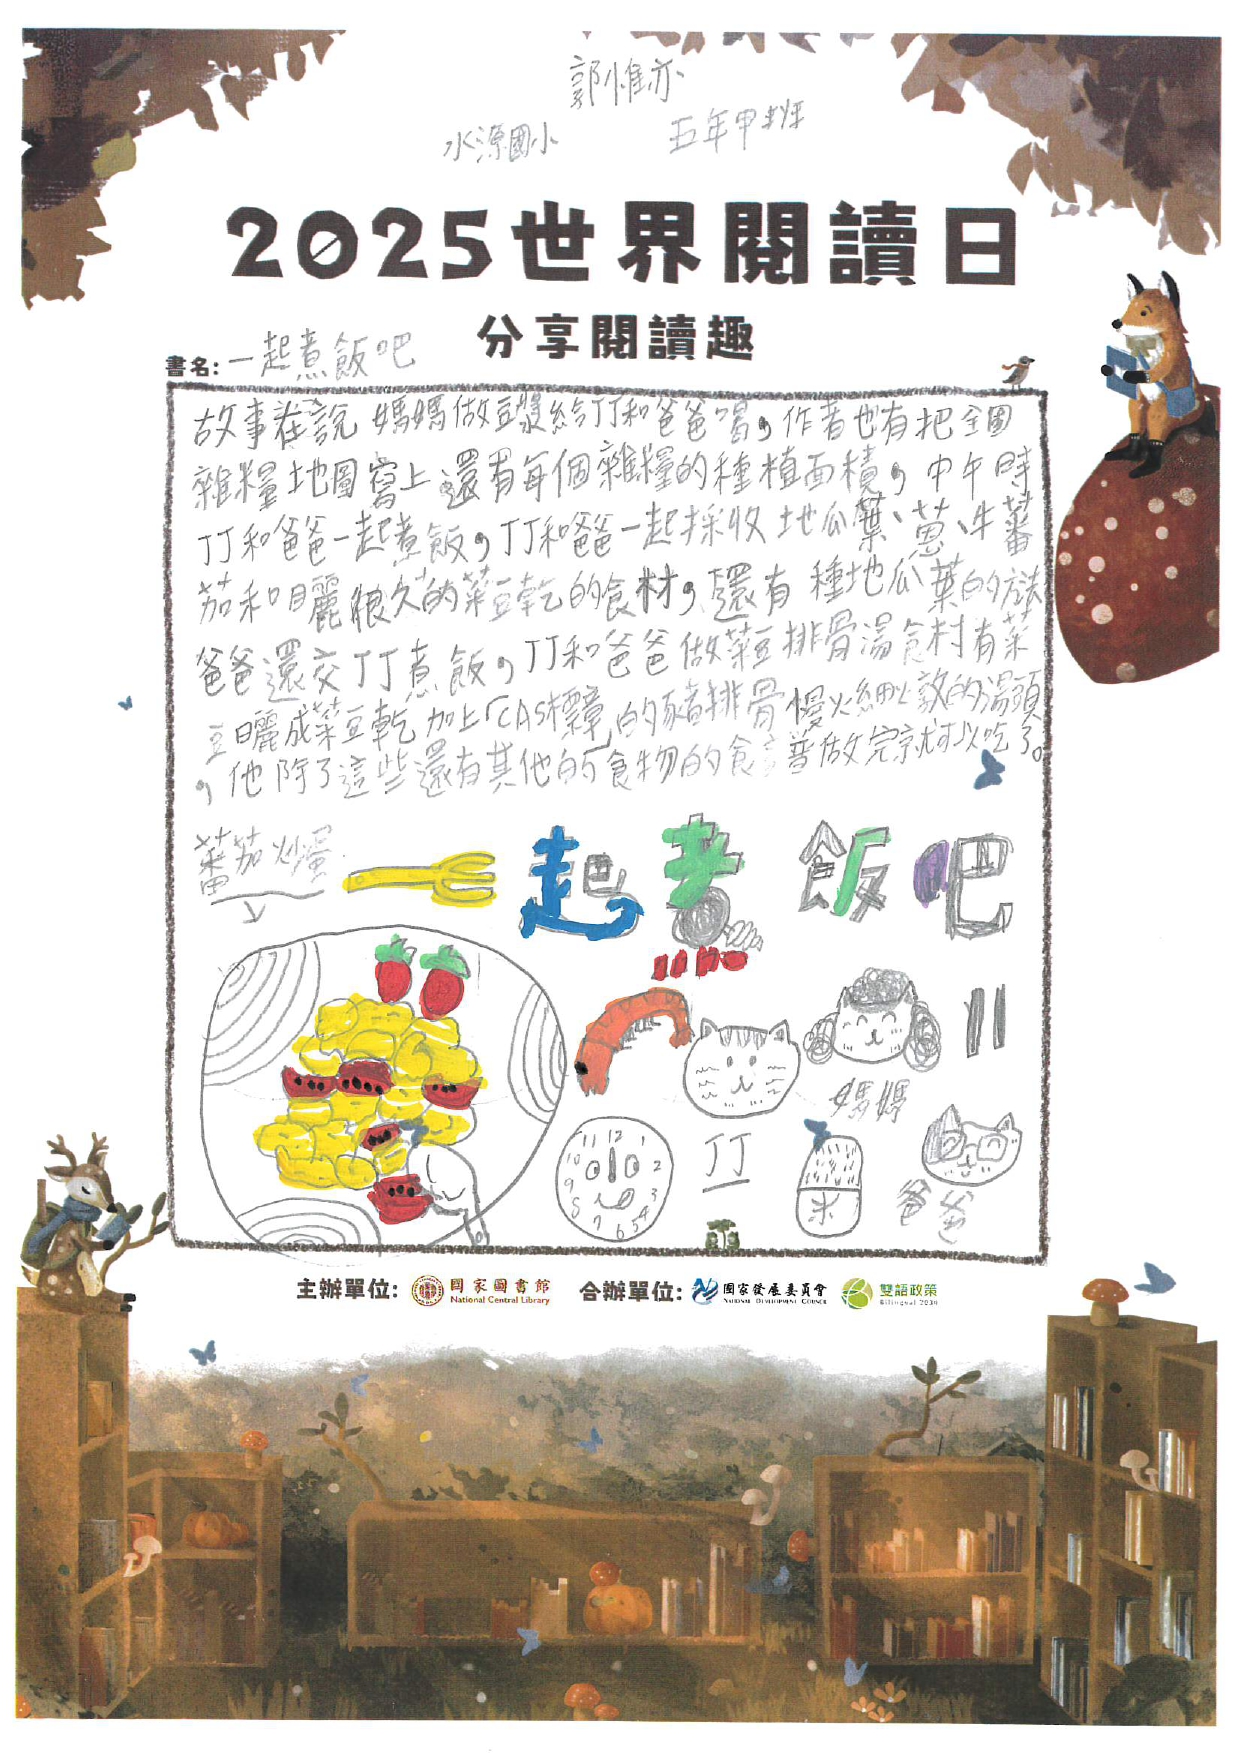 郭惟亦
水源國小
五年甲班
2025世界閱讀日
分享閱讀趣
書名:一起煮飯吧
故事在說 媽媽做豆漿給丁丁和爸爸喝,作者也有把全國
雜糧地圖寫上還有每個雜糧的種植面積,中午時
丁丁和爸爸一起煮飯,丁丁和爸爸一起採收地瓜葉、蔥、牛蕃
茄和曬很久的菜豆乾的食材,還有種地瓜葉的方法
爸爸還交丁丁煮飯,丁丁和爸爸做菜豆排骨湯食材有菜
豆曬成菜豆乾加上「CAS標章」的豬排骨慢火細火敖的湯頭
,他除了這些還有其他的食物的食譜做完就可以吃了。
蕃茄炒蛋
一起煮飯吧
媽媽
丁丁
爸爸
米
11 12 1
10 2
9 3
8 7 6 5 4
主辦單位: 國家圖書館 National Central Library
合辦單位: 國家發展委員會 National Development Council 雙語政策 Bilingual 2030